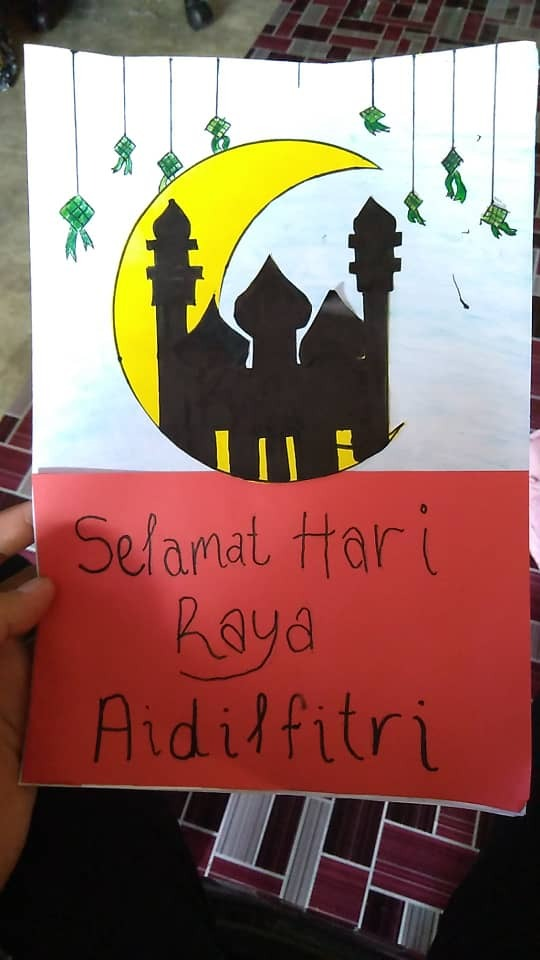 Selamat Hari
Raya
Aidilfitri